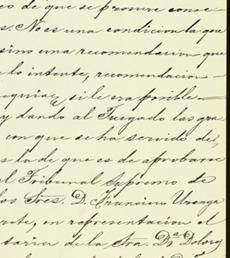 os de que se procure conoc
s. No es una condicion la que
sino una recomendacion que
lo intente, recomendacion —
equiva, si le era posible —
y dando al Juzgado las gra
con que se ha servido de,
s la de que es de aprobarse
el Tribunal Supremo de
los Sres. D. Francisco Uranga
rte, en representacion el
taria de la Sra. Dª Dolores